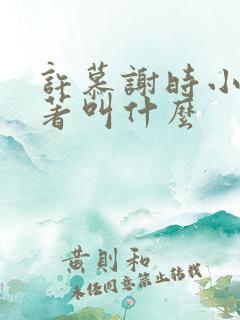 許慕謝時小
著叫什麼
黃則和
未經同意禁止轉載